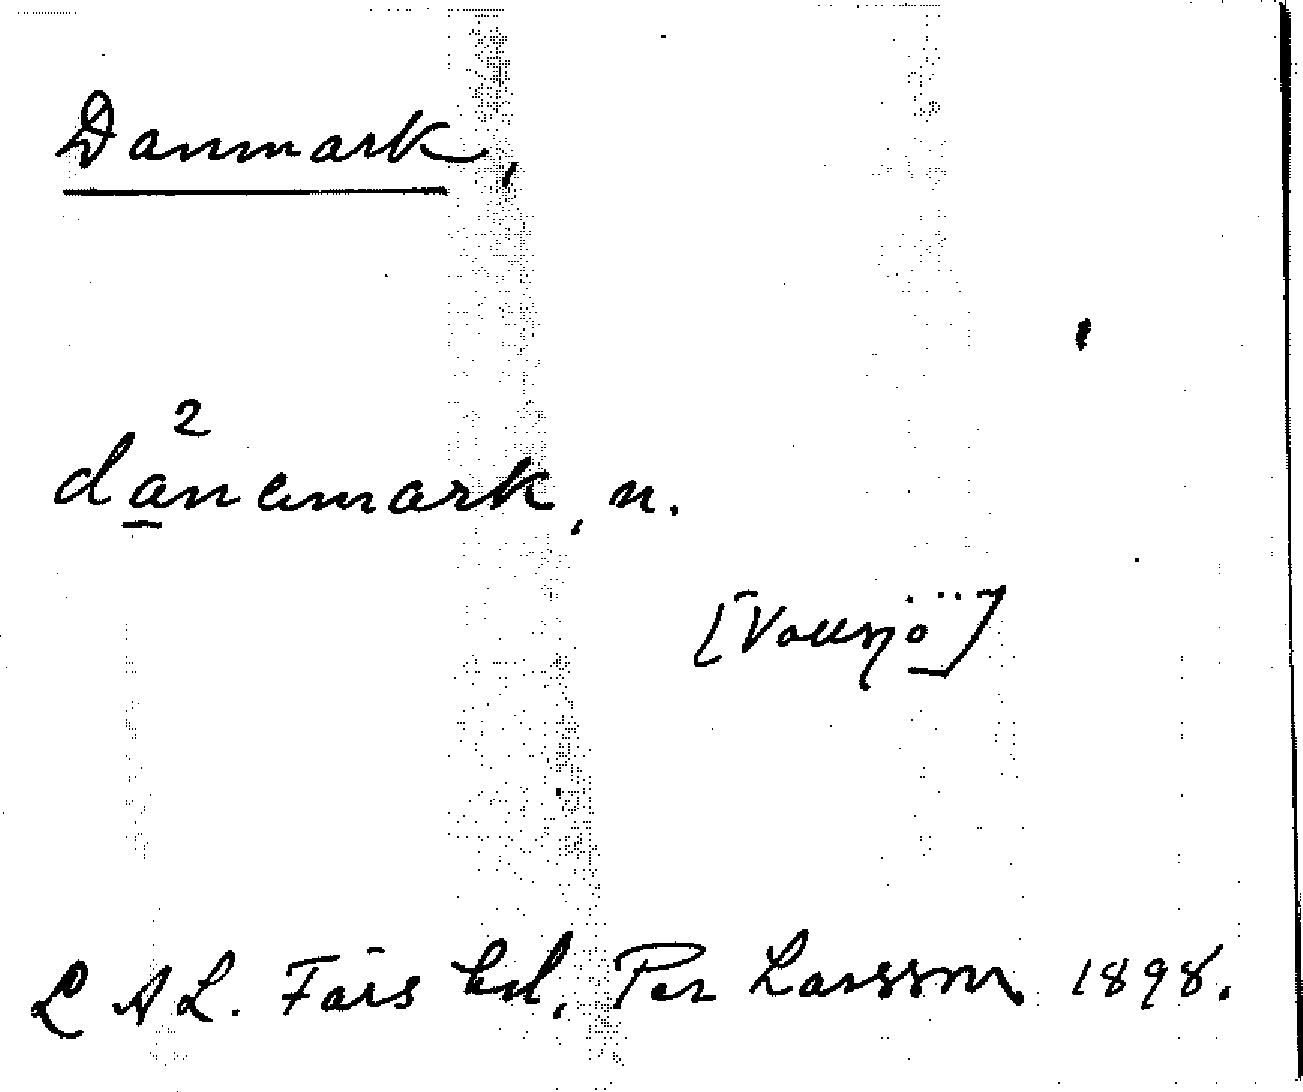 Danmark,
2
danemark, n.
[Vollsjö]
L A L. Färs hd, Per Larsson 1898.